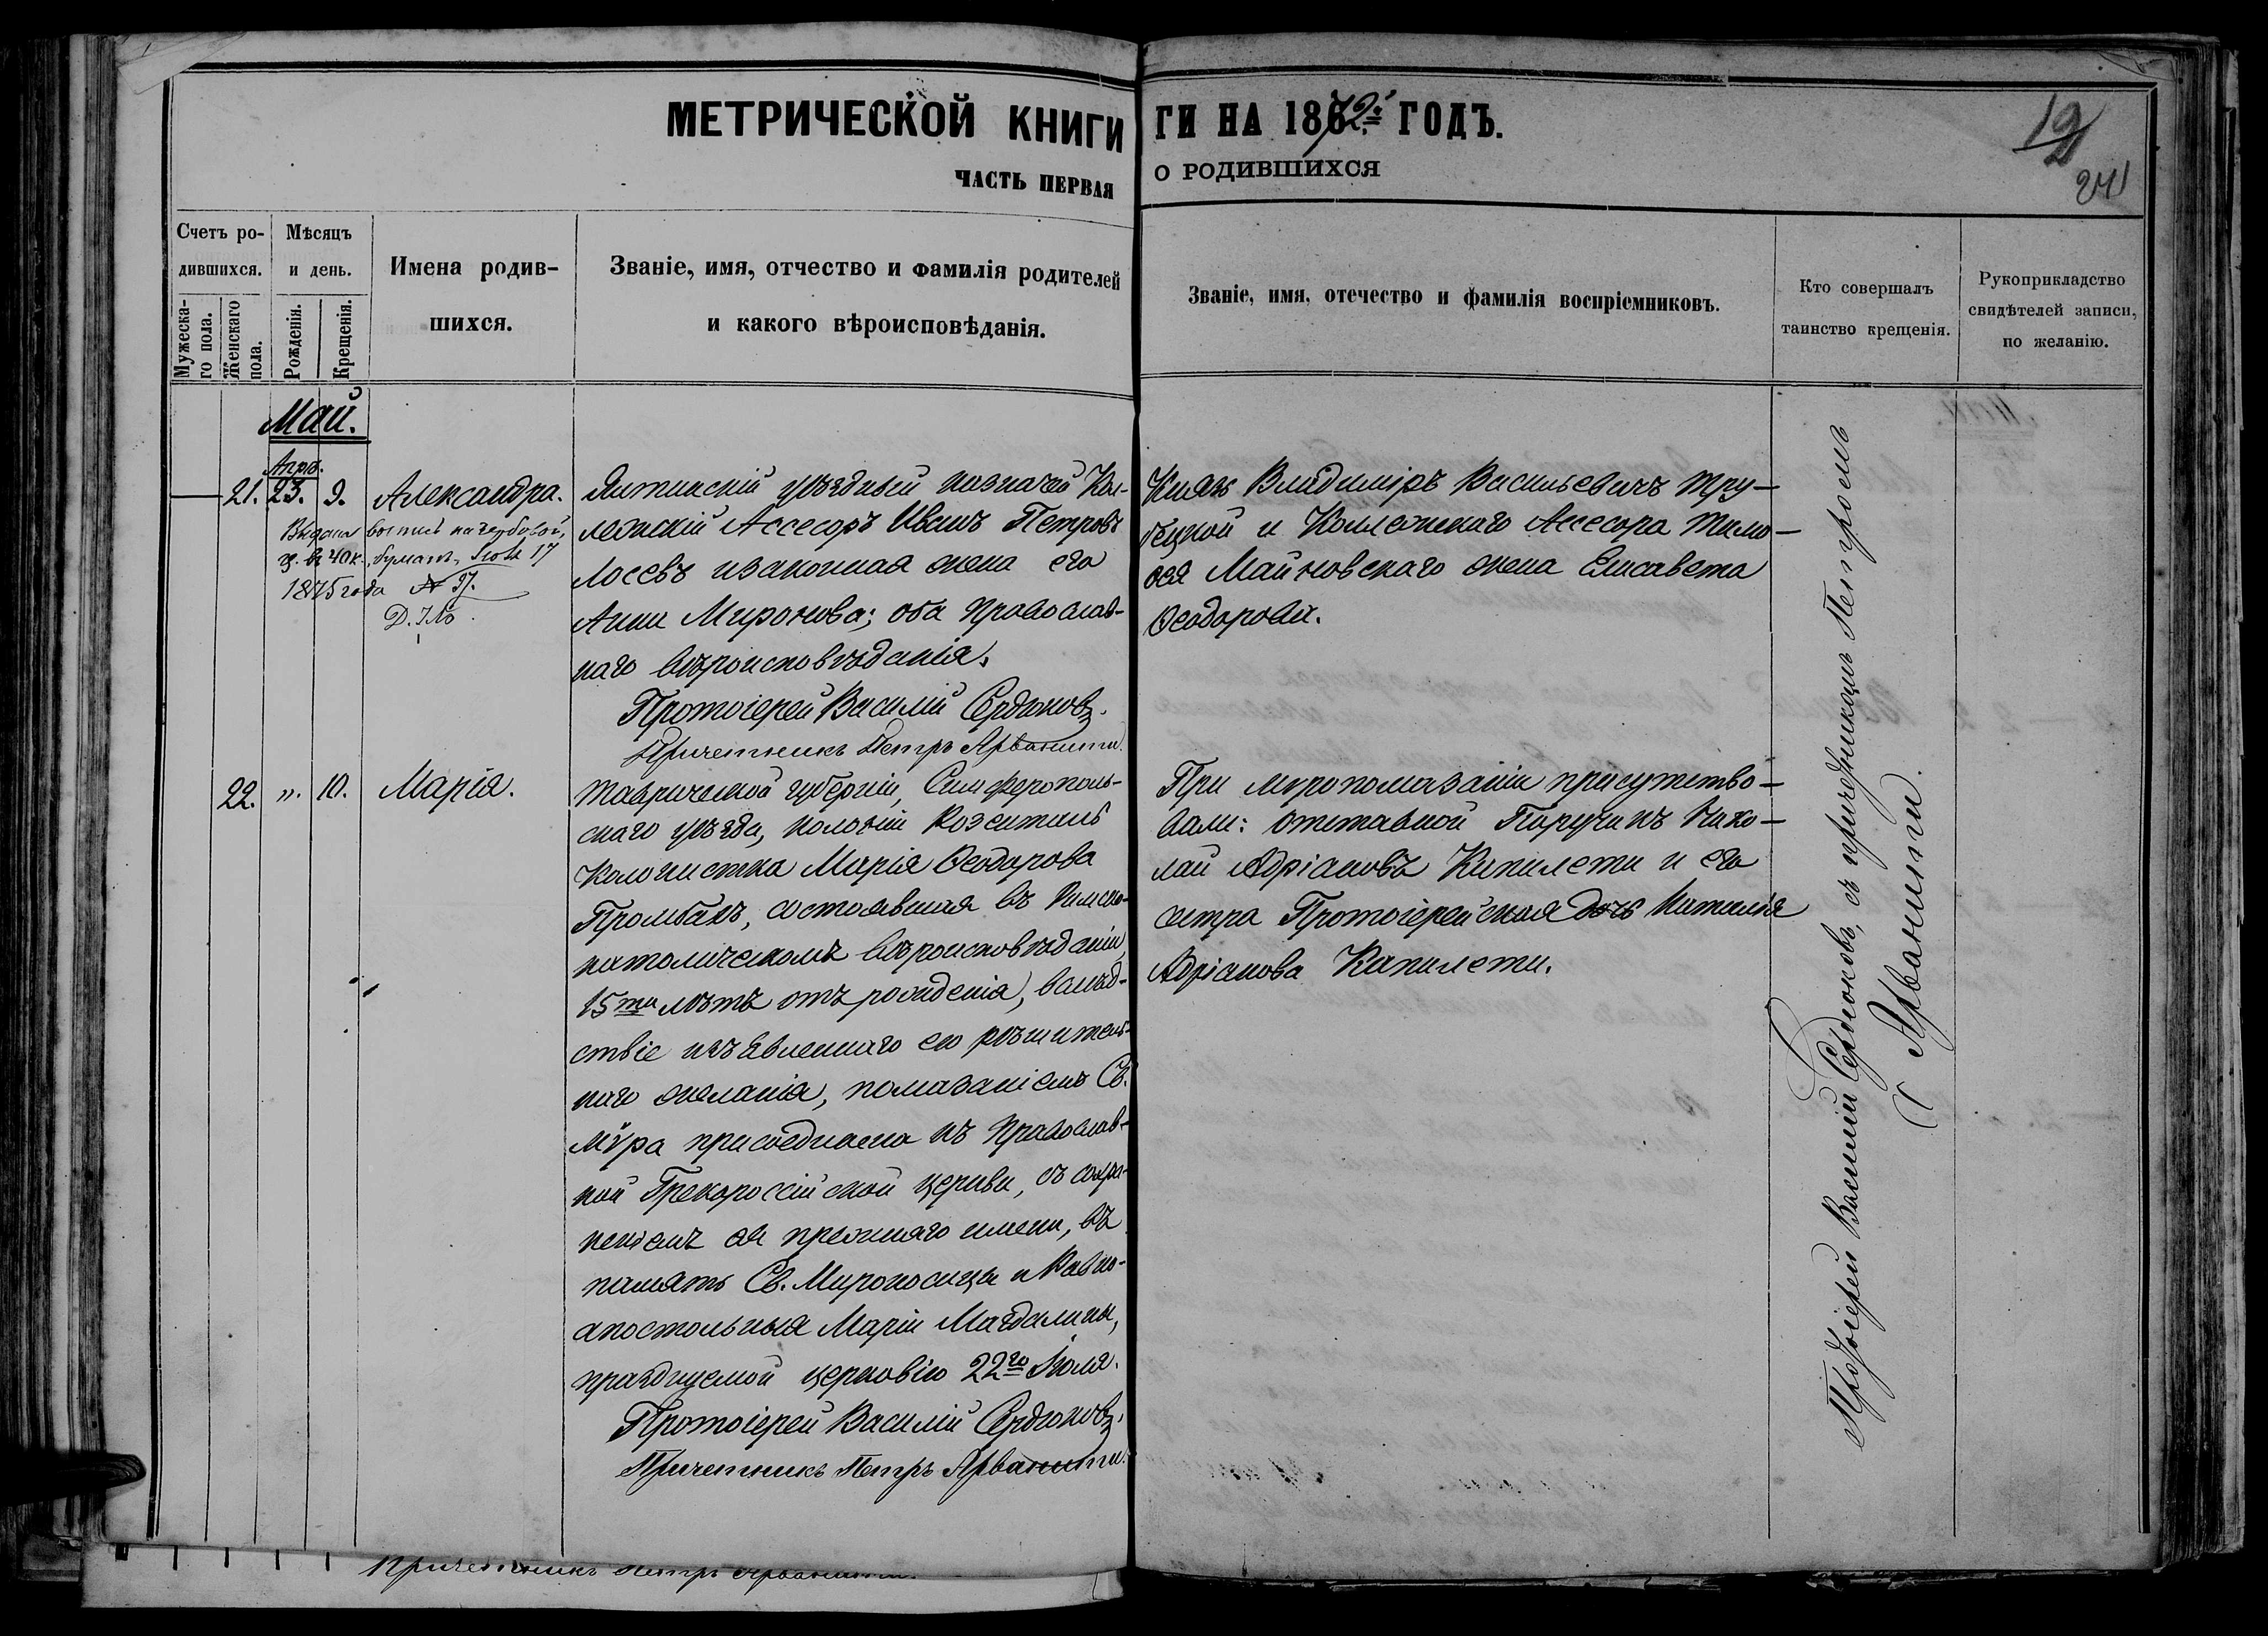 МЕТРИЧЕСКОЙ КНИГИ
ГИ НА 1872й ГОДЪ.
ЧАСТЬ ПЕРВАЯ
О РОДИВШИХСЯ
19
24
Счетъ ро-
дившихся.
Мужеска-
го пола.
Женскаго
пола.
Мѣсяцъ
и день.
Рожденія.
Крещенія.
Имена родив-
шихся.
Званіе, имя, отчество и фамилія родителей
и какого вѣроисповѣданія.
Званіе, имя, отечество и фамилія воспріемниковъ.
Кто совершалъ
таинство крещенія.
Рукоприкладство
свидѣтелей записи,
по желанію.
Май.
Апрѣ.
21. 23. 9. Александра.
на гербовой,
въ 40 к. бумагѣ, 17
1875 года № 37.
Ялтинскій уѣздный казначей Кол-
лежскій Ассесоръ Иванъ Петровъ
Лосевъ и законная жена его
Анна Миронова; оба православ-
наго вѣроисповѣданія.
Протоіерей Василій Сердюковъ.
Причетникъ Петръ Арванити.
Князь Владиміръ Васильевичъ Тру-
бецкой и Коллежскаго Ассесора Тимо-
ѳея Майновскаго жена Елисавета
Ѳеодорова.
22. „. 10. Марія.
Таврической губерніи, Симферополь-
скаго уѣзда, колоніи Розенталь
Колонистка Марія Ѳеодорова
Промбахъ, состоявшая въ Римско-
католическомъ вѣроисповѣданіи,
15ти лѣтъ отъ рожденія, вслѣд-
ствіе изъявленнаго ею рѣшитель-
наго желанія, помазаніемъ Св.
Мѵра присоединена къ Православ-
ной Грекороссійской церкви, съ сохра-
неніемъ ея прежняго имени, въ
память Св. Мироносицы и Равно-
апостольныя Маріи Магдалины,
празднуемой церковію 22го Іюля.
Протоіерей Василій Сердюковъ.
Причетникъ Петръ Арванити.
При мѵропомазаніи присутство-
вали: отставной Поручикъ Нико-
лай Адріановъ Капилети и его
сестра Протоіерейская дочь Наталія
Адріанова Капилети.
Протоіерей Василій Сердюковъ, съ причетникомъ Петромъ
Арванити.
Причетникъ Петръ Арванити.